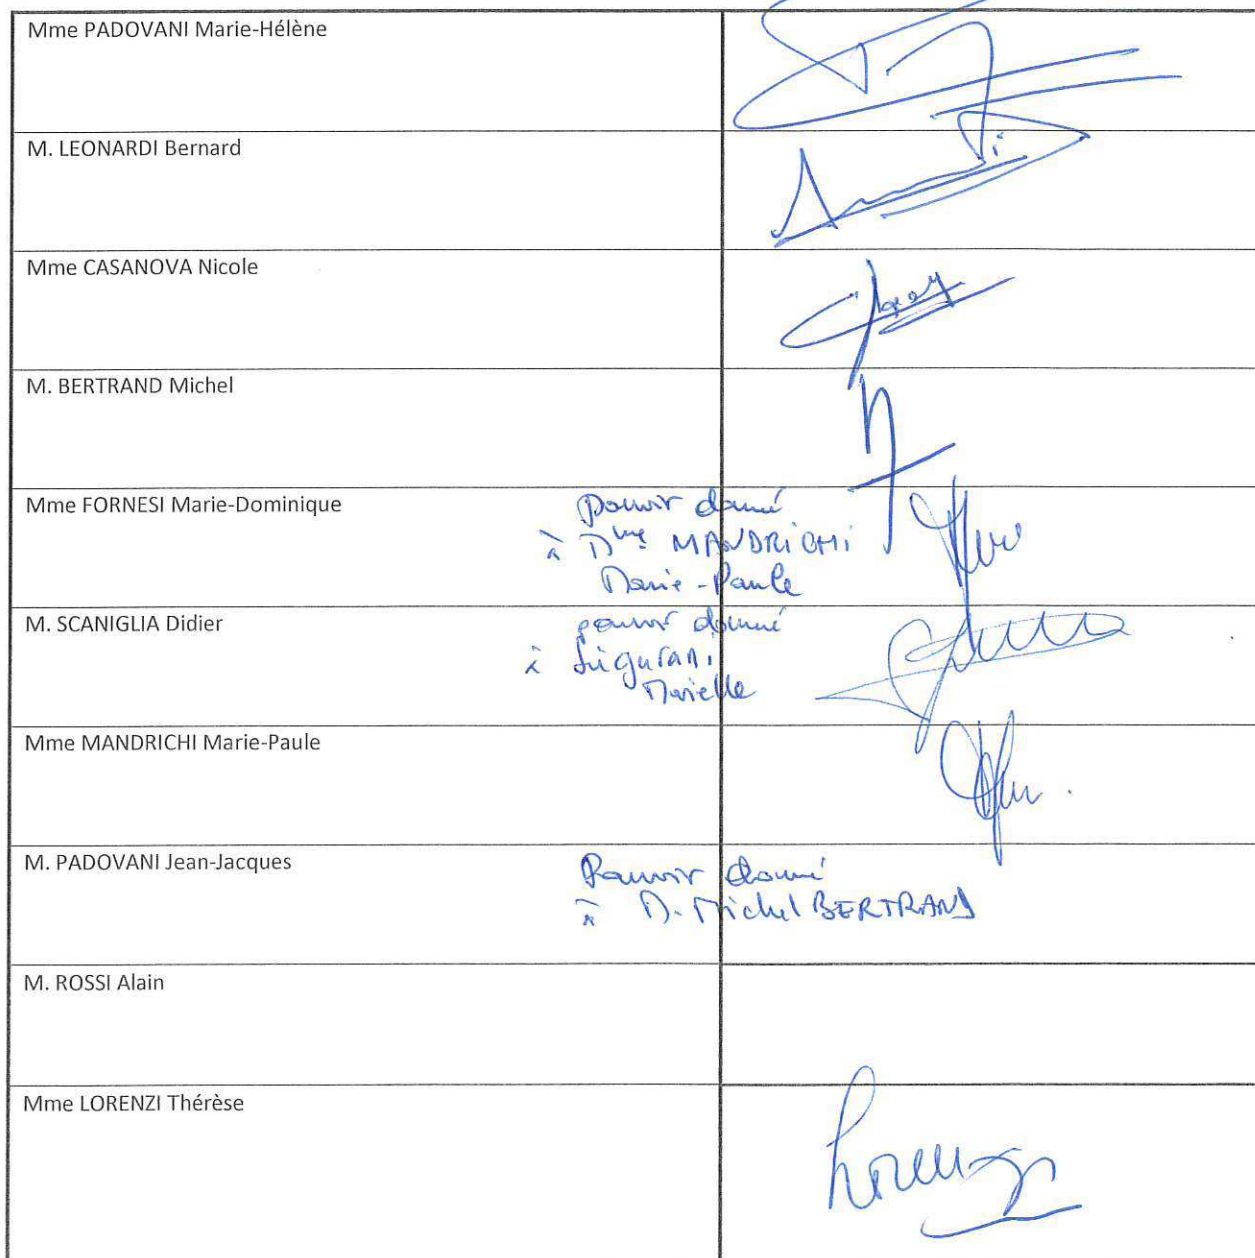 Mme PADOVANI Marie-Hélène
M. LEONARDI Bernard
Mme CASANOVA Nicole
M. BERTRAND Michel
Mme FORNESI Marie-Dominique
Pouvoir donné
à Mme MANDRICHI
Marie-Paule
M. SCANIGLIA Didier
pouvoir donné
à
Marielle
Mme MANDRICHI Marie-Paule
M. PADOVANI Jean-Jacques
Pouvoir donné
à M. Michel BERTRAND
M. ROSSI Alain
Mme LORENZI Thérèse
Lorenzi